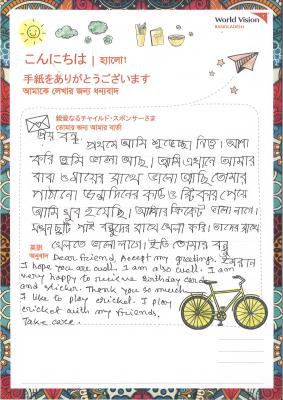 World Vision
BANGLADESH
こんにちは | হ্যালো!
手紙をありがとうございます
আমাকে লেখার জন্য ধন্যবাদ
親愛なるチャイルド・スポンサーさま
তোমার জন্য আমার বার্তা
প্রিয় বন্ধু,
প্রথমে আমি শুভেচ্ছা নিও। আশা
করি তুমি ভালো আছ। আমি এখানে আমার
বাবা ও মায়ের সাথে ভালো আছি তোমার
পাঠানো জন্মদিনের কার্ড ও স্টিকার পেয়ে
আমি খুব হয়েছি। আমার ক্রিকেট ভালো লাগে।
যখন ছুটি পাই বন্ধুদের সাথে খেলা করি। তাদের সাথে
খেলতে ভালো লাগে। ইতি তোমার বন্ধু
英訳
অনুবাদ
Dear friend, Accept my greetings.
I hope you are well. I am also well. I am
very happy to recieve Birthday card
and sticker. Thank you so much.
I like to play cricket. I play
cricket with my friends.
Take care.